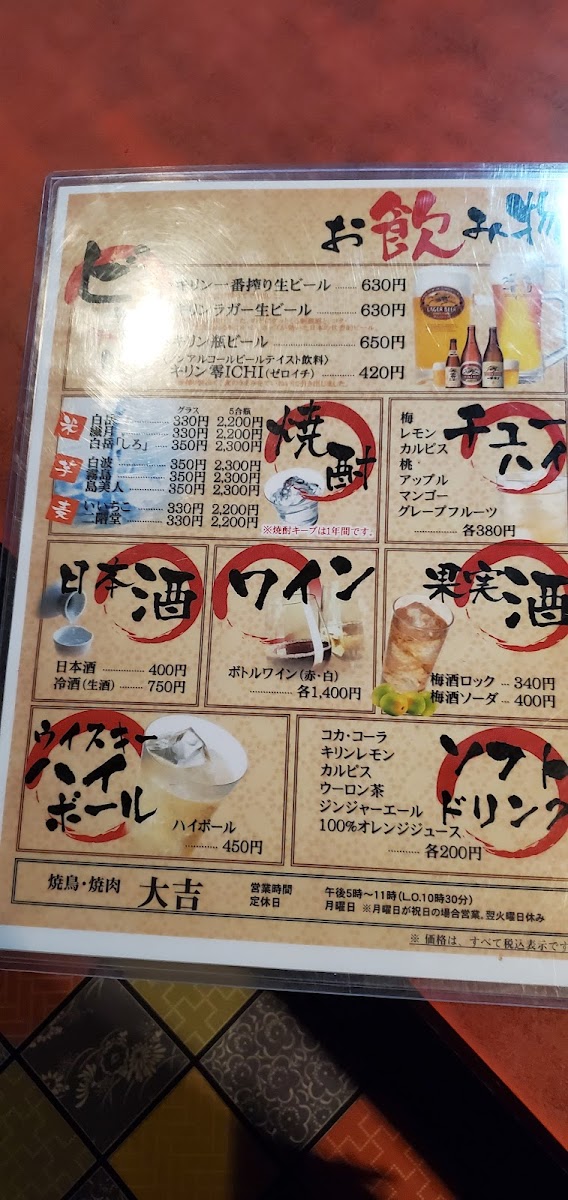 お飲み物
ビ
キリン一番搾り生ビール ……… 630円
ラガー生ビール ……… 630円
キリン瓶ビール ……… 650円
ノンアルコールビールテイスト飲料〉
キリン零ICHI(ゼロイチ) …… 420円
焼酎
グラス 5合瓶
米
白岳 330円 2,200円
繊月 330円 2,200円
白岳「しろ」 350円 2,300円
芋
白波 350円 2,300円
霧島 350円 2,300円
島美人 350円 2,300円
麦
いいちこ 330円 2,200円
二階堂 330円 2,200円
※焼酎キープは1年間です。
チューハイ
梅
レモン
カルピス
桃
アップル
マンゴー
グレープフルーツ
各380円
日本酒
日本酒 ………… 400円
冷酒(生酒) …… 750円
ワイン
ボトルワイン(赤・白)
………… 各1,400円
果実酒
梅酒ロック … 340円
梅酒ソーダ … 400円
ウイスキー
ハイ
ボール
ハイボール
………… 450円
ソフト
ドリンク
コカ・コーラ
キリンレモン
カルピス
ウーロン茶
ジンジャーエール
100%オレンジジュース
………… 各200円
焼鳥・焼肉 大吉
営業時間 午後5時〜11時(L.O.10時30分)
定休日 月曜日 ※月曜日が祝日の場合営業。翌火曜日休み
※ 価格は、すべて税込表示です